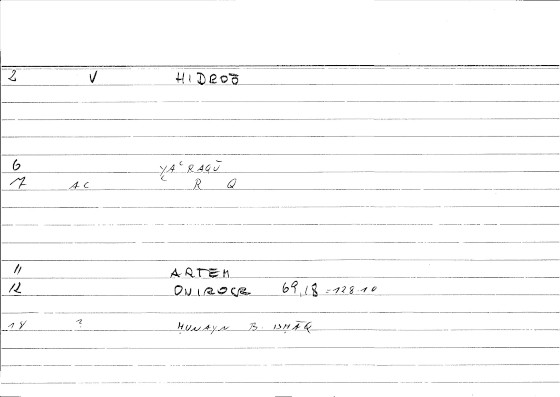 2 V HIDROŌ
6 YAʿRAQU
7 AC ʿ R Q
11 ARTEM
12 ONIROCR 69,18 = 128.10
14 ? ḤUNAYN B. ISḤĀQ